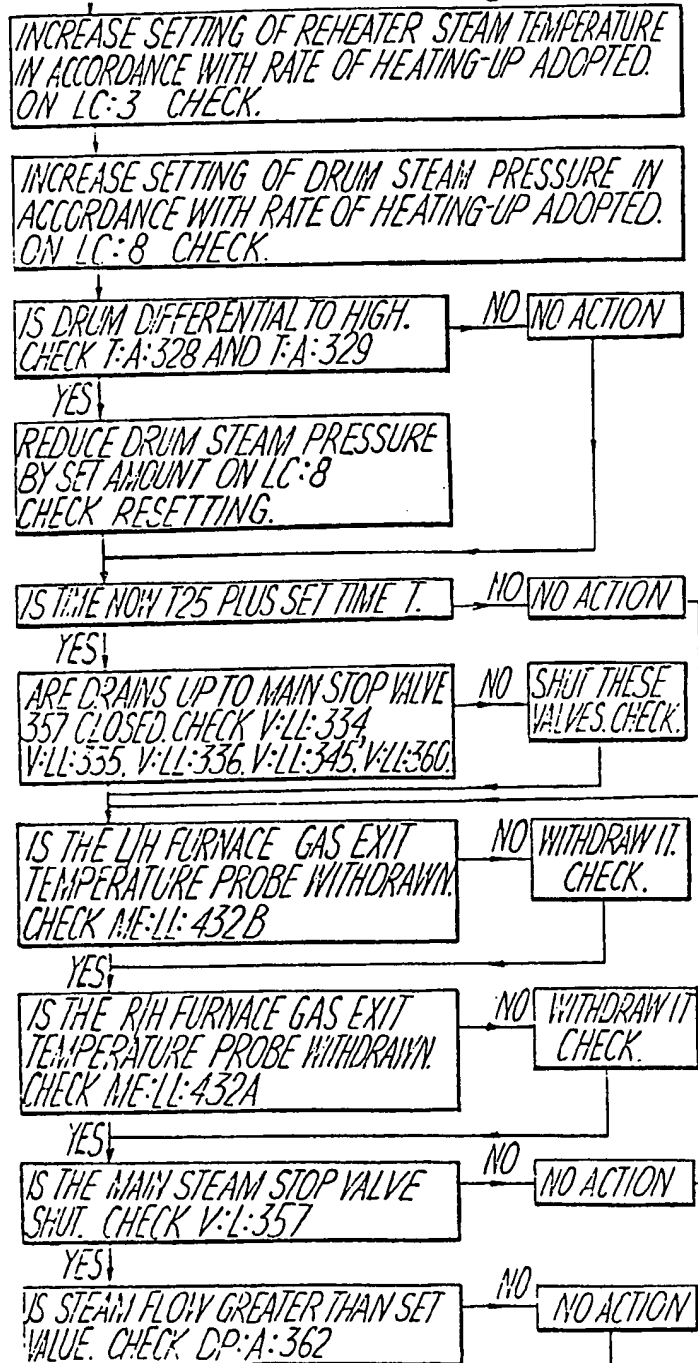 INCREASE SETTING OF REHEATER STEAM TEMPERATURE
IN ACCORDANCE WITH RATE OF HEATING-UP ADOPTED.
ON LC:3 CHECK.
INCREASE SETTING OF DRUM STEAM PRESSURE IN
ACCORDANCE WITH RATE OF HEATING-UP ADOPTED.
ON LC:8 CHECK.
IS DRUM DIFFERENTIAL TO HIGH.
CHECK T:A:328 AND T:A:329
NO
NO ACTION
YES
REDUCE DRUM STEAM PRESSURE
BY SET AMOUNT ON LC:8
CHECK RESETTING.
IS TIME NOW T25 PLUS SET TIME T.
NO
NO ACTION
YES
ARE DRAINS UP TO MAIN STOP VALVE
357 CLOSED. CHECK V:LL:334,
V:LL:335, V:LL:336, V:LL:345, V:LL:360.
NO
SHUT THESE
VALVES. CHECK.
IS THE L/H FURNACE GAS EXIT
TEMPERATURE PROBE WITHDRAWN.
CHECK ME:LL:432B
NO
WITHDRAW IT.
CHECK.
YES
IS THE R/H FURNACE GAS EXIT
TEMPERATURE PROBE WITHDRAWN.
CHECK ME:LL:432A
NO
WITHDRAW IT
CHECK.
YES
IS THE MAIN STEAM STOP VALVE
SHUT. CHECK V:L:357
NO
NO ACTION
YES
IS STEAM FLOW GREATER THAN SET
VALUE. CHECK DP:A:362
NO
NO ACTION